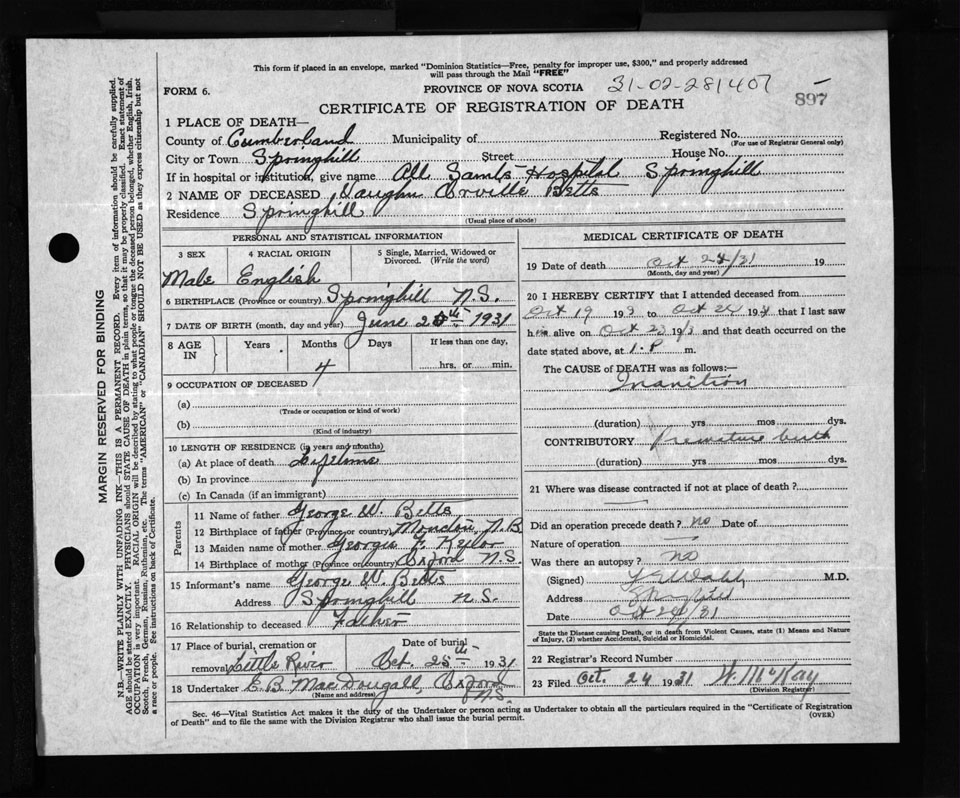 This form if placed in an envelope, marked "Dominion Statistics—Free, penalty for improper use, $300," and properly addressed
will pass through the Mail "FREE"
FORM 6. PROVINCE OF NOVA SCOTIA 31-02-281407
897
CERTIFICATE OF REGISTRATION OF DEATH
1 PLACE OF DEATH—
County of Cumberland Municipality of Registered No.
(For use of Registrar General only)
City or Town Springhill Street House No.
If in hospital or institution, give name All Saints Hospital Springhill
2 NAME OF DECEASED Vaughn Orville Betts
Residence Springhill
(Usual place of abode)
PERSONAL AND STATISTICAL INFORMATION
3 SEX 4 RACIAL ORIGIN 5 Single, Married, Widowed or
Divorced. (Write the word)
Male English
6 BIRTHPLACE (Province or country) Springhill N.S.
7 DATE OF BIRTH (month, day and year) June 20th 1931
8 AGE IN Years Months Days If less than one day,
4 hrs. or min.
9 OCCUPATION OF DECEASED
(a)
(Trade or occupation or kind of work)
(b)
(Kind of industry)
10 LENGTH OF RESIDENCE (in years and months)
(a) At place of death Lifetime
(b) In province
(c) In Canada (if an immigrant)
Parents
11 Name of father George W. Betts
12 Birthplace of father (Province or country) Moncton, N.B
13 Maiden name of mother Georgie F. Keylor
14 Birthplace of mother (Province or country) Oxford N.S.
15 Informant's name George W. Betts
Address Springhill N.S.
16 Relationship to deceased Father
17 Place of burial, cremation or Date of burial
removal Little River Oct. 25th 1931
18 Undertaker E.B. MacDougall, Oxford
(Name and address) N.S.
MEDICAL CERTIFICATE OF DEATH
19 Date of death Oct 24/31 19
(Month, day and year)
20 I HEREBY CERTIFY that I attended deceased from
Oct 19 193 to Oct 24 1931 that I last saw
h alive on Oct 23 193 and that death occurred on the
date stated above, at 1.P. m.
The CAUSE of DEATH was as follows:—
Inanition
(duration) yrs mos dys.
CONTRIBUTORY Premature birth
(duration) yrs mos dys.
21 Where was disease contracted if not at place of death?
Did an operation precede death? no Date of
Nature of operation
Was there an autopsy? no
(Signed) M.D.
Address
Date Oct 24/31
State the Disease causing Death, or in death from Violent Causes, state (1) Means and Nature
of Injury, (2) whether Accidental, Suicidal or Homicidal.
22 Registrar's Record Number
23 Filed Oct. 24 1931 W. McKay
(Division Registrar)
Sec. 46—Vital Statistics Act makes it the duty of the Undertaker or person acting as Undertaker to obtain all the particulars required in the "Certificate of Registration
of Death" and to file the same with the Division Registrar who shall issue the burial permit. (OVER)
MARGIN RESERVED FOR BINDING
N.B.—WRITE PLAINLY WITH UNFADING INK—THIS IS A PERMANENT RECORD. Every item of information should be carefully supplied.
AGE should be stated EXACTLY. PHYSICIANS should STATE CAUSE OF DEATH in plain terms, so that it may be properly classified. Exact statement of
OCCUPATION is very important. RACIAL ORIGIN will be described by stating to what people or tongue the deceased person belonged, whether English, Irish,
Scotch, French, German, Russian, Ruthenian, etc. The terms "AMERICAN" or "CANADIAN" SHOULD NOT BE USED as they express citizenship but not
a race or people. See instructions on back of Certificate.